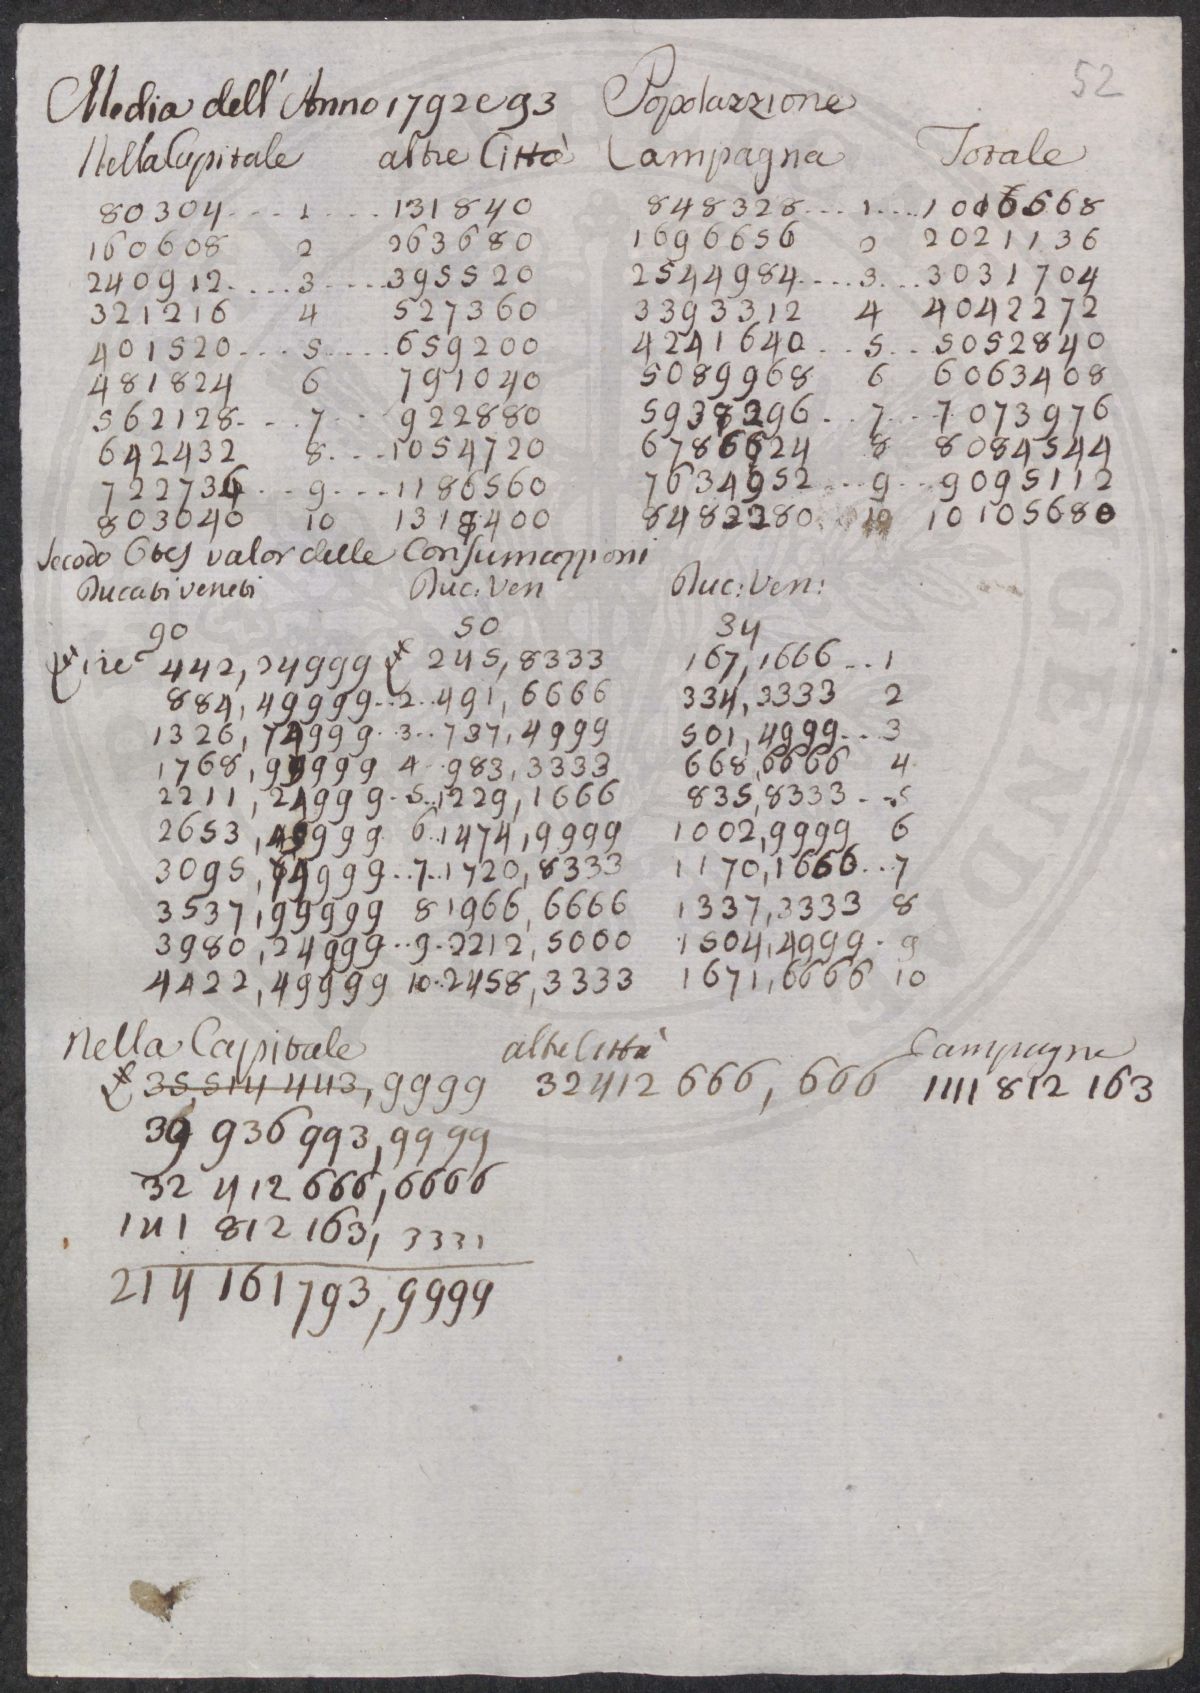 52
Media dell' Anno 1792 e 93 Popolazzione
Nella Capitale altre Città Campagna Totale
80304 .... 1 .... 131840 848328 .... 1 .... 1010568
160608 2 263680 1696656 2 2021136
240912 .... 3 .... 395520 2544984 .... 3 ... 3031704
321216 4 527360 3393312 4 4042272
401520 .... 5 .... 659200 4241640 .. 5 .. 5052840
481824 6 791040 5089968 6 6063408
562128 .... 7 ... 922880 5938296 .. 7 .. 7073976
642432 8 .... 1054720 6786624 8 8084544
722736 ... 9 .... 1186560 7634952 ... 9 .. 9095112
803040 10 1318400 8483280 10 10105680
secodo valor delle Consumazzioni
Ducati veneti Duc: Ven Duc: Ven:
90 50 34
Lire 442,24999 £ 245,8333 167,1666 .. 1
884,49999 .. 2 .. 491,6666 334,3333 2
1326,74999 .. 3 .. 737,4999 501,4999 .. 3
1768,99999 4 .. 983,3333 668,6666 4
2211,24999 . 5 .. 1229,1666 835,8333 .. 5
2653,49999 6 . 1474,9999 1002,9999 6
3095,74999 .. 7 .. 1720,8333 1170,1666 .. 7
3537,99999 8 1966,6666 1337,3333 8
3980,24999 .. 9 . 2212,5000 1504,4999 . 9
4422,49999 10 . 2458,3333 1671,6666 10
Nella Capitale altre Città Campagna
£ 35,514 443,9999 32412 666,666 141 812 163
39 936 993,9999
32 412 666,6666
141 812 163,3331
214 161 793,9999